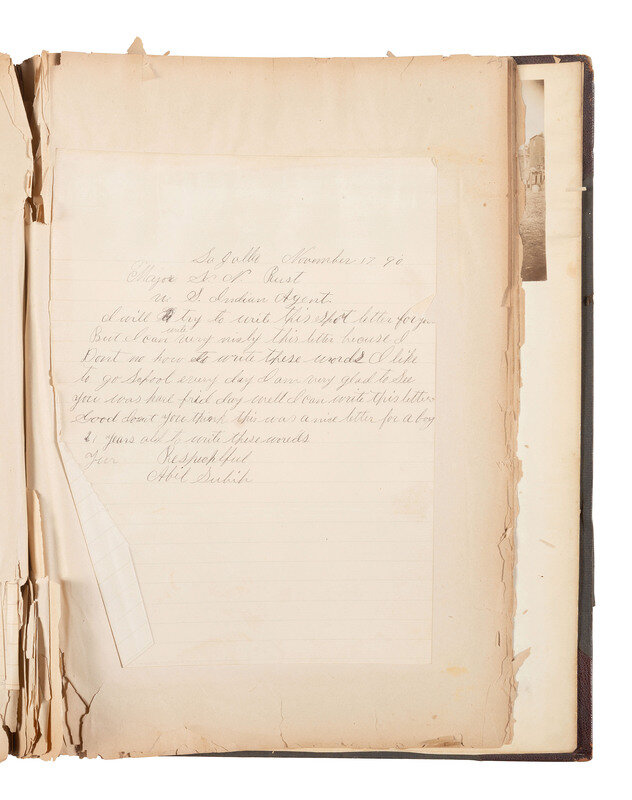 November 17 90
Major H. N. Rust
U S. Indian Agent.
I will try to write this shot letter for you
But I can write very nisly this letter becuse I
Dont no how to write these words I like
to go Schoool every day I am very glad to See
you was hare fried day well I can write this letter
Good dont you think this was a nise letter for a boy
21 years old to write these words
Your Respechtful
Abil Subih